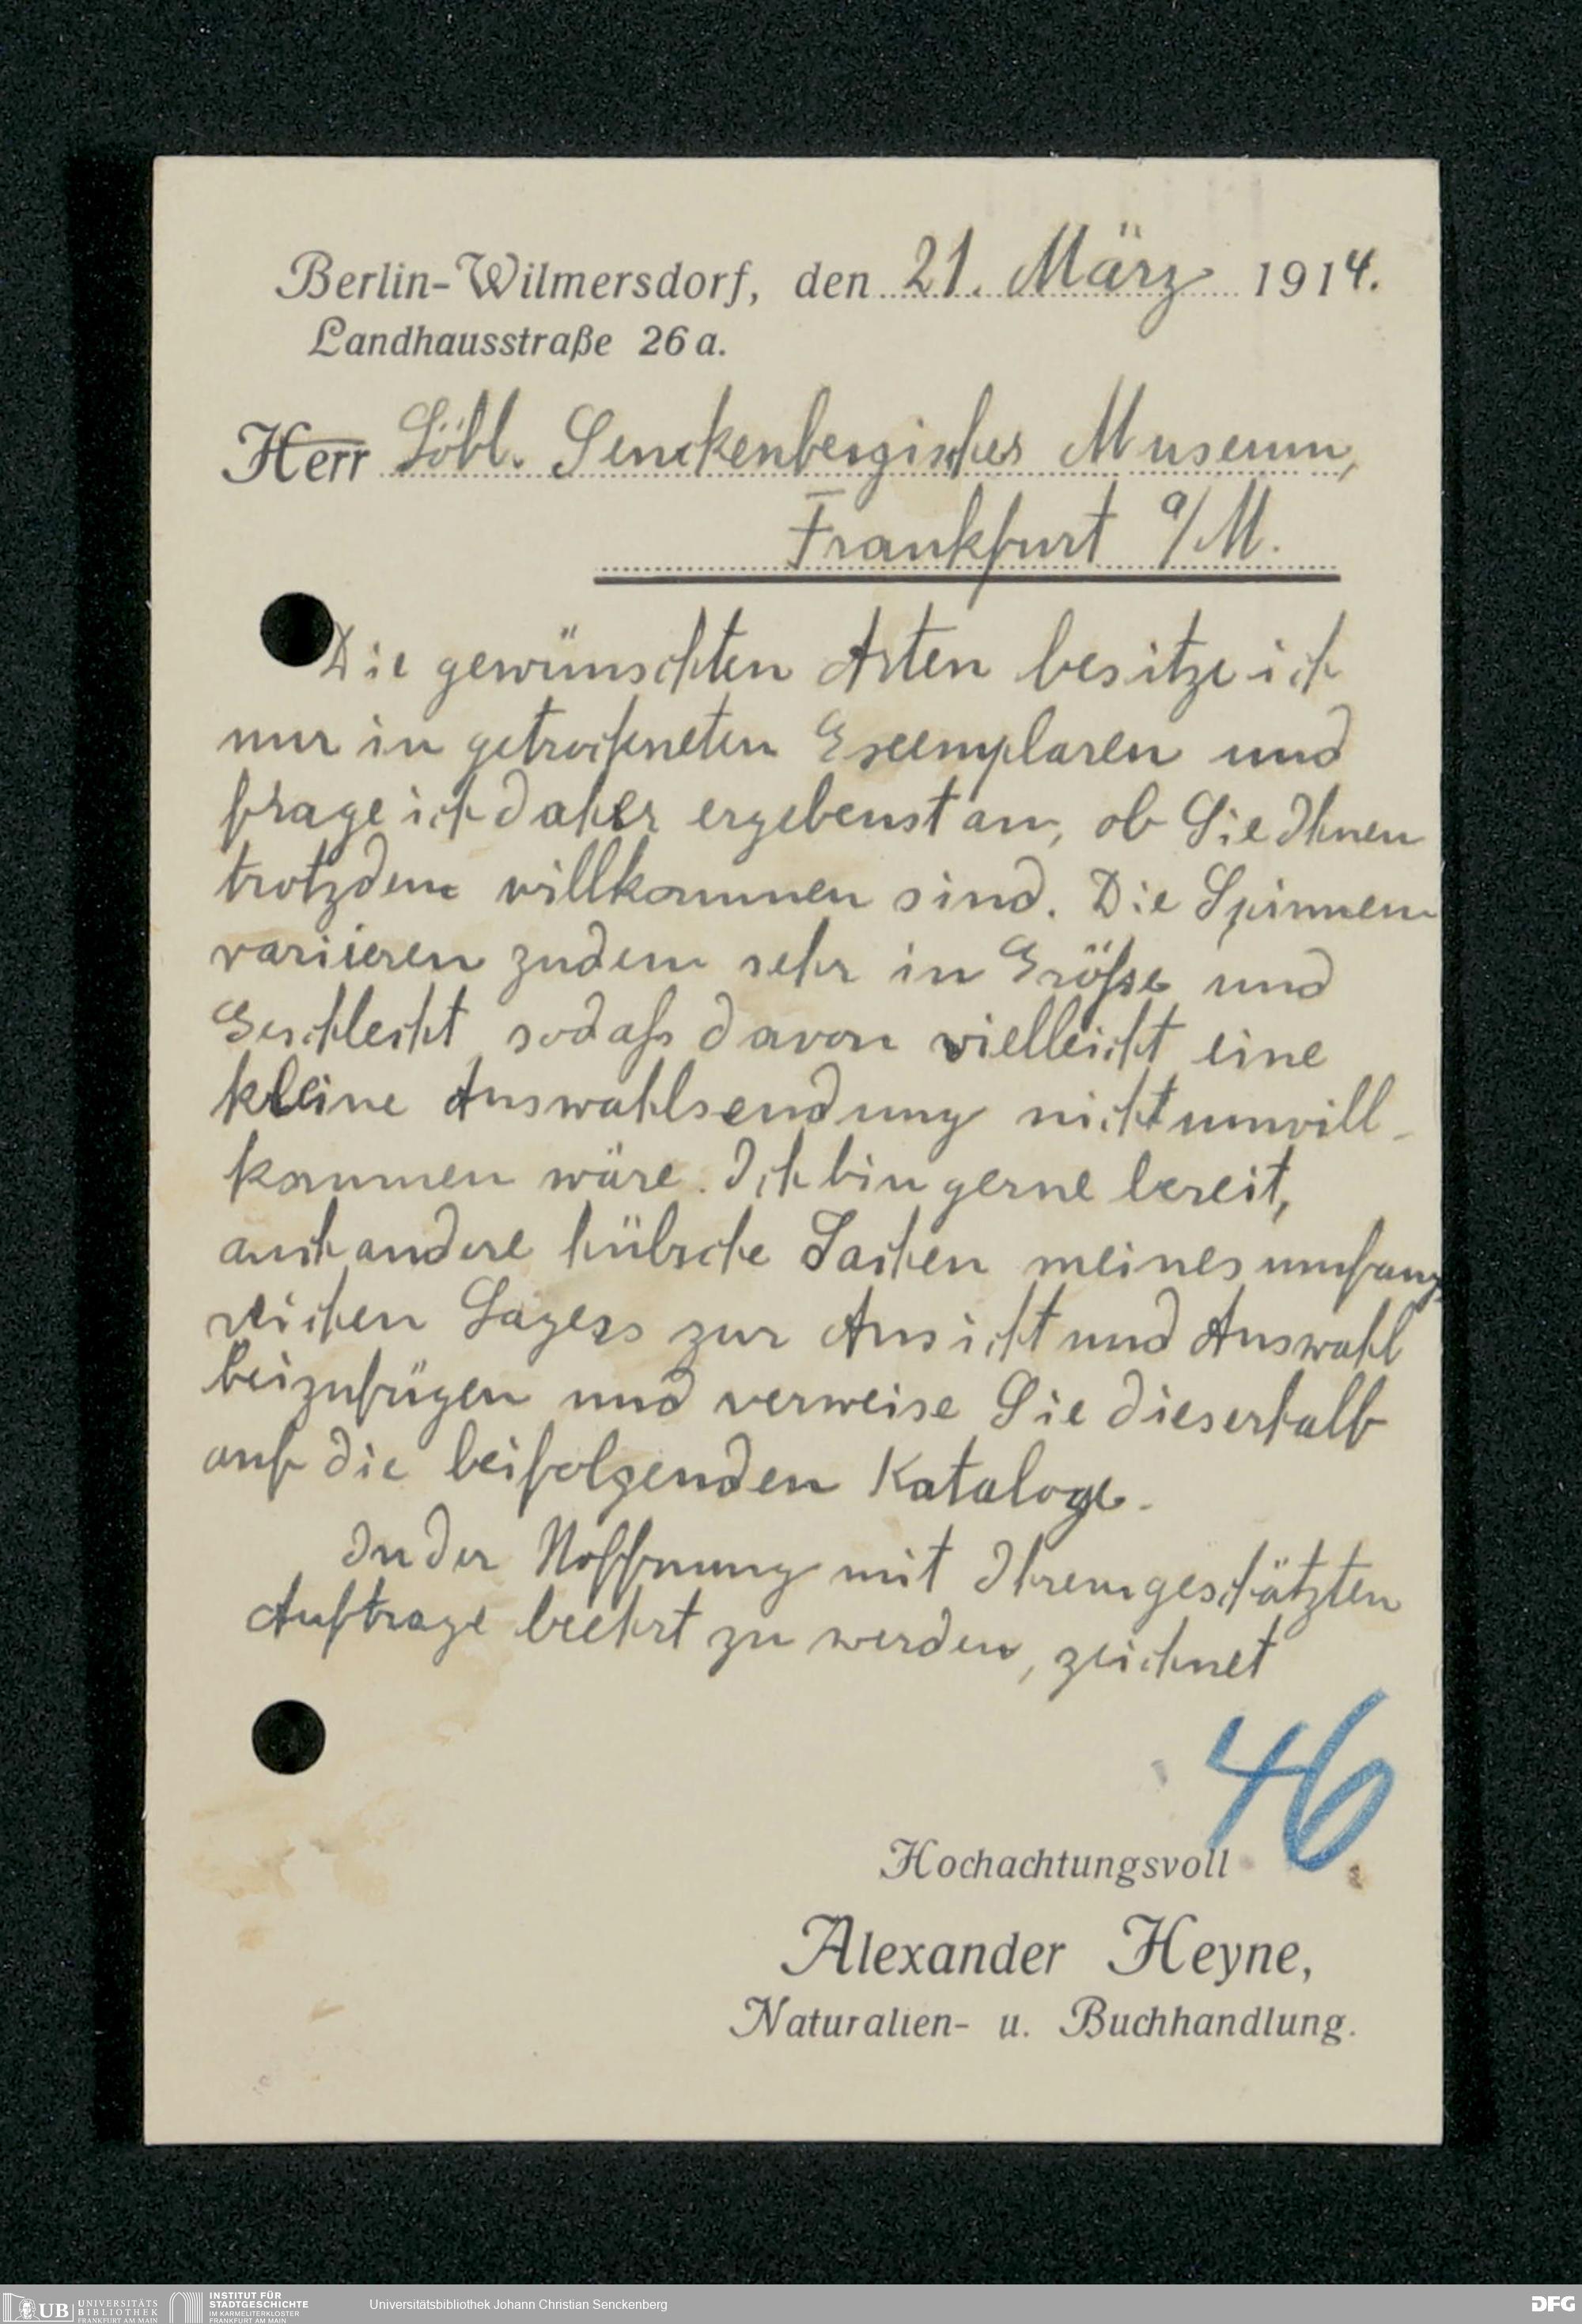 Berlin-Wilmersdorf, den 21. März 1914.
Landhausstraße 26a.
Herr Löbl. Senckenbergisches Museum,
Frankfurt a/M.
Die gewünschten Arten besitze ich
nur in getrockneten Exemplaren und
frage ich daher ergebenst an, ob Sie Ihnen
trotzdem willkommen sind. Die Spinnen
variieren zudem sehr in Größe und
Geschlecht sodaß davon vielleicht eine
kleine Auswahlsendung nicht unwill-
kommen wäre. Ich bin gerne bereit,
auch andere hübsche Sachen meines umfang-
reichen Lagers zur Ansicht und Auswahl
beizufügen und verweise Sie dieserhalb
auf die beifolgenden Kataloge.
In der Hoffnung mit Ihrem geschätzten
Auftrage beehrt zu werden, zeichnet
46
Hochachtungsvoll
Alexander Heyne,
Naturalien- u. Buchhandlung.
UB UNIVERSITÄTS
BIBLIOTHEK
FRANKFURT AM MAIN
INSTITUT FÜR
STADTGESCHICHTE
IM KARMELITERKLOSTER
FRANKFURT AM MAIN
Universitätsbibliothek Johann Christian Senckenberg
DFG